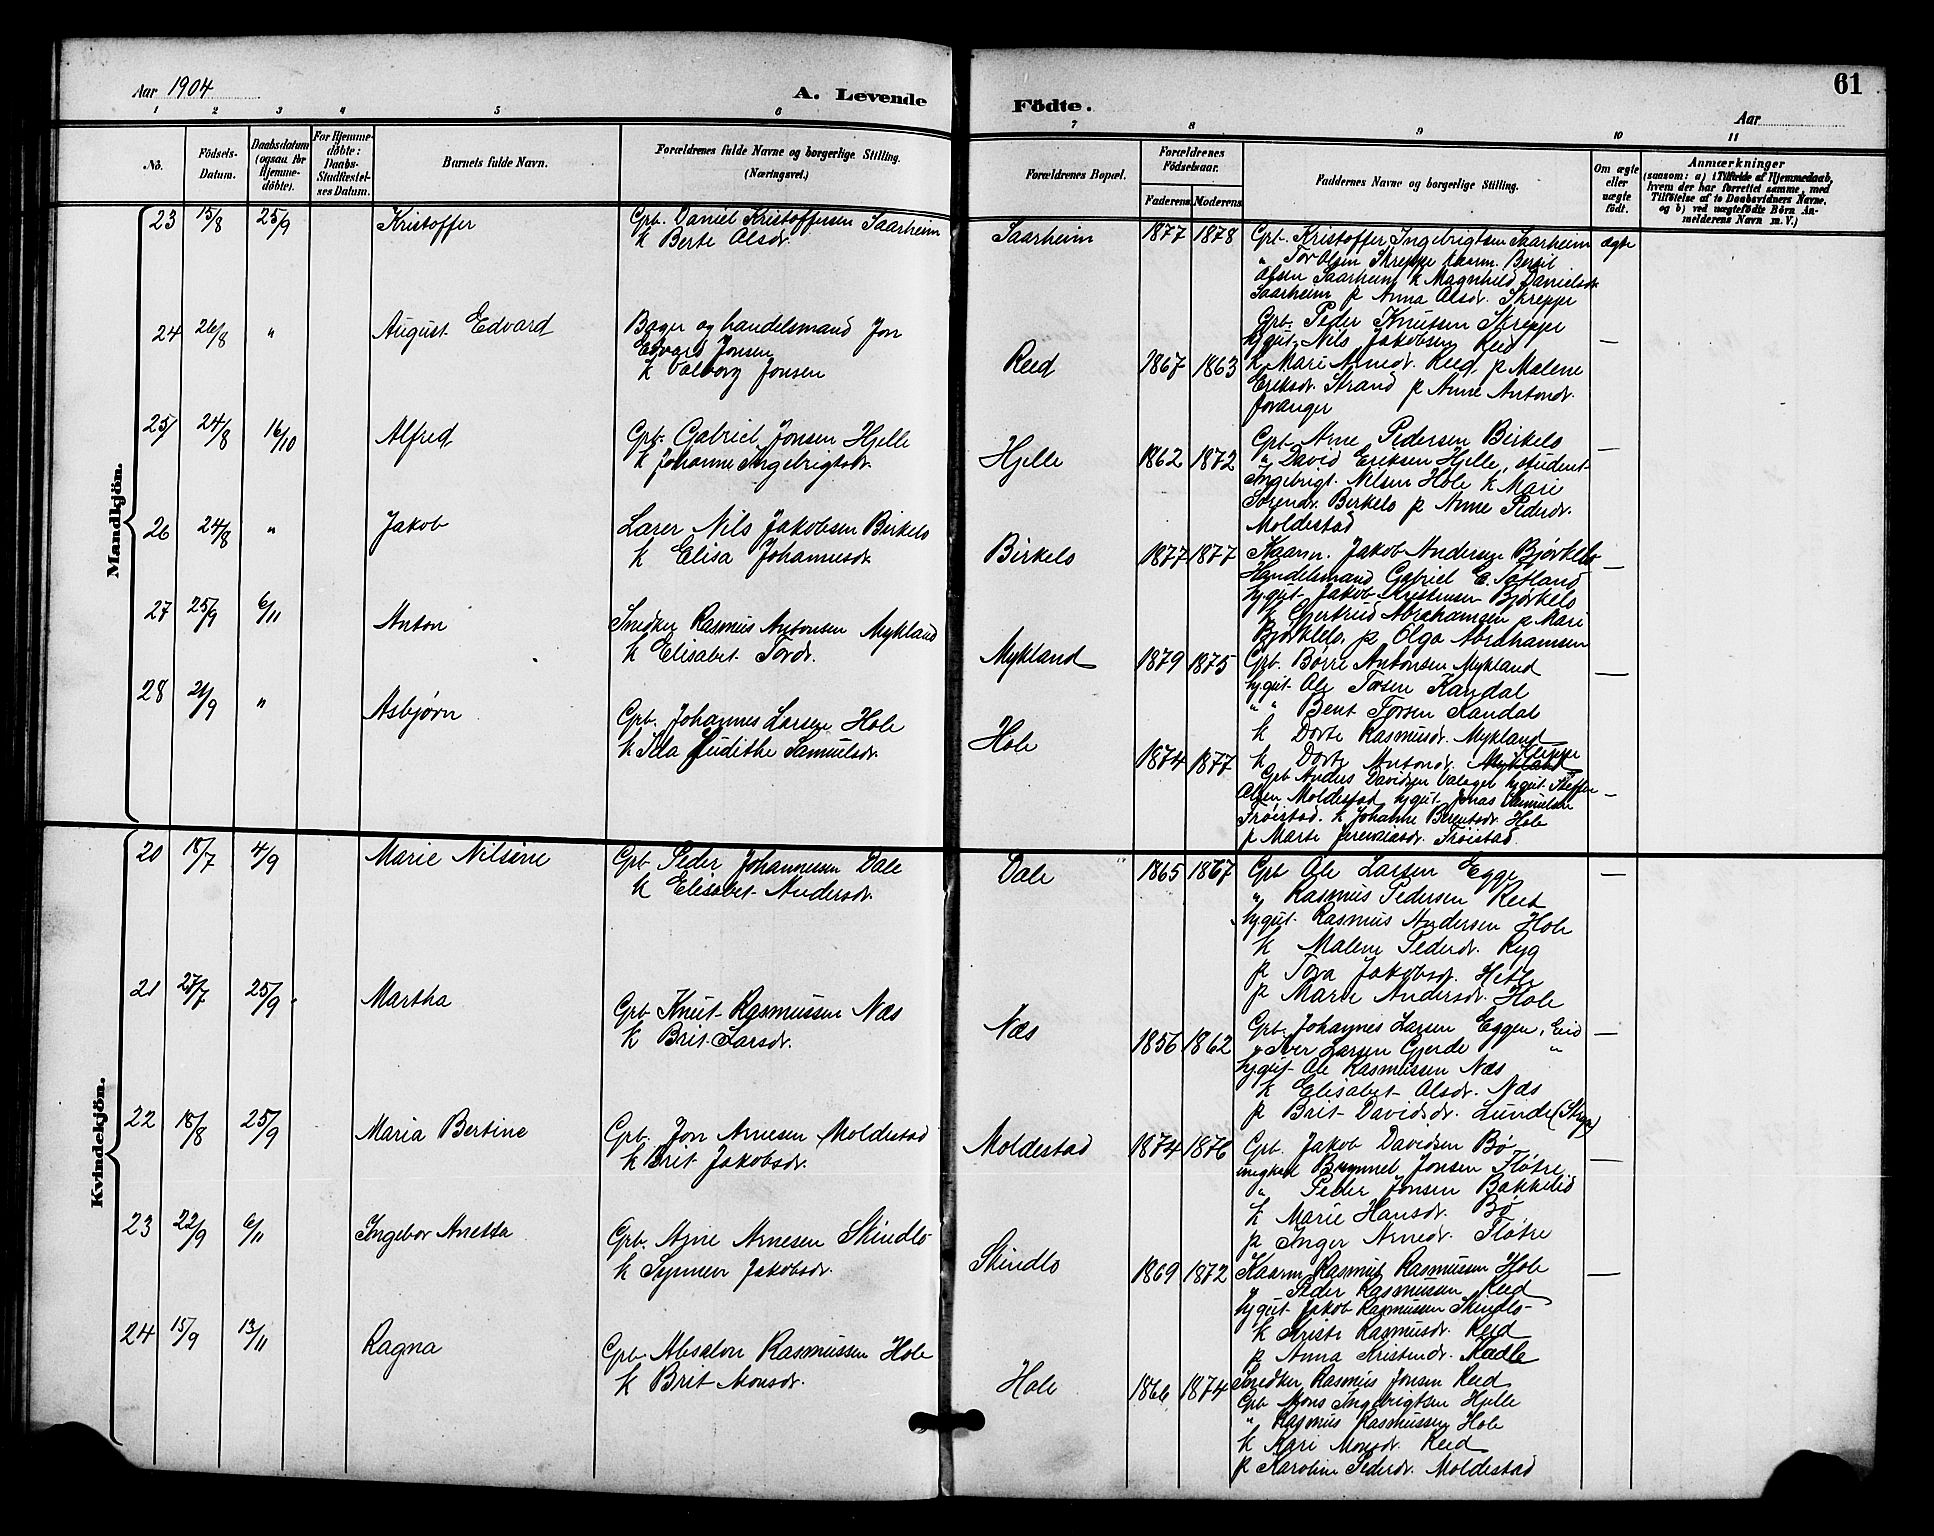 Aar 1904
A. Levende
Födte.
Aar
61
1 2 3 4 5 6 7 8 9 10 11
No.
Födsels-Datum.
Daabsdatum (ogsaa for Hjemmedöbte).
For Hjemmedöbte: Daabs-Stadfæstelses Datum.
Barnets fulde Navn.
Forældrenes fulde Navne og borgerlige Stilling.
(Næringsvei.)
Forældrenes Bopæl.
Forældrenes Födselsaar.
Faderens Moderens
Faddernes Navne og borgerlige Stilling.
Om ægte eller uægte födt.
Anmærkninger
(saasom: a) i Tilfælde af Hjemmedaab,
hvem der har forrettet samme, med
Tilföielse af to Daabsvidners Navne.
og b) ved uægtefödte Börn An-
melderens Navn m. V.)
Mandkjön.
23 15/8 25/9 Kristoffer
Gpb. Daniel Kristoffersen Saarheim
k Berte Olsdr.
Saarheim 1877 1878
Gpb. Kristoffer Ingebrigtsen Saarheim ægte
" Tor Olsen Skreppe kaarm. Bertil
Olsen Saarheim k Magnhild Danielsdr
Saarheim p Anna Olsdr. Skreppe
24 26/8 " August Edvard
Bager og handelsmand Jon
Edvard Jonsen
k Valborg Jonsen
Reed 1867 1863
Gpb. Peder Knutsen Skreppe
ugut. Nils Jakobsen Reed —
k Mari Arnedr. Reed p Malene
Eriksdr. Strand p Anne Antondr.
foranger
25 24/8 16/10 Alfred
Gpb. Gabriel Jonsen Hjelle
k Johanne Ingebrigtsdr.
Hjelle 1862 1872
Gpb. Arne Pedersen Birkelo —
" David Eriksen Hjelle, student
Ingebrigt Nilsen Hole k Mari
Sørendr. Birkelo p Anne Pederdr.
Moldestad
26 24/8 " Jakob
Lærer Nils Jakobsen Birkelo
k Elisa Johannesdr.
Birkelo 1877 1877
Kaarm. Jakob Andersen Bjørkelo —
Handelsmand Gabriel E.
ugut Jakob Kristensen Bjørkelo
k Gjertrud Abrahamsen p Mari
Bjørkelo, p Olga Abrahamsen
27 25/9 6/11 Anton
Snedker Rasmus Antonsen Mykland
k Elisabet Tordr.
Mykland 1879 1875
Gpb. Børre Antonsen Mykland —
ugut Ole Torsen Kandal
" " Bent Torsen Kandal
k Dorte Rasmusdr. Mykland
k Dorte Antondr. Mykland
28 21/9 " Asbjørn
Gpb. Johannes Larsen Hole
k Ida Judithe Samuelsdr.
Hole 1874 1877
Gpb Anders Davidsen ugut Steffen
Olsen Moldestad, ugut. Jonas Samuelsen —
Trøistad. k Johanne Berentsdr Hole
p Marte Trøistad.
Kvindekjön.
20 18/7 4/9 Marie Nilsine
Gpb. Peder Johannessen Dale
k Elisabet Andersdr.
Dale 1865 1867
Gpb Ole Larsen Egge —
" Rasmus Pedersen Reed
ugut. Rasmus Andersen Hole
k Malene Pederdr. Ryg
p Tora Jakobsdr.
p Marie Andersdr. Hole
21 27/7 25/9 Martha
Gpb Knut Rasmussen Næs
k Brit Larsdr.
Næs 1856 1862
Gpb. Johannes Larsen Eggen, Eid —
" Iver Larsen Gjerde "
ugut Ole Rasmussen Næs
k Elisabet Olsdr. Næs
p Brit Davidsdr. Lunde
22 18/8 25/9 Maria Bertine
Gpb. Jon Arnesen Moldestad
k Brit Jakobsdr.
Moldestad 1874 1876
Gpb. Jakob Davidsen Bø —
ungkarl Brynnel Jonsen Fløtre
" Peder Jonsen Bakkelid
k Marie Hansdr. Bø
p Inger Arnedr. Fløtre
23 22/9 6/11 Ingebor Anetta
Gpb. Arne Arnesen Skindlo
k Synneve Jakobsdr.
Skindlo 1869 1872
Kaarm Rasmus Rasmussen Hole —
" Peder Rasmussen Reed
ugut Jakob Rasmussen Skindlo
k Kristi Rasmusdr. Reed
p Anna Kristendr.
24 15/9 13/11 Ragna
Gpb. Absalon Rasmussen Hole
k Brit Monsdr.
Hole 1866 1874
Snedker Rasmus Jonsen Reed
Gpb Mons Ingebrigtsen Hjelle
" Rasmus Rasmussen Hole
k Kari Monsdr. Reed
p Karoline Pederdr. Moldestad